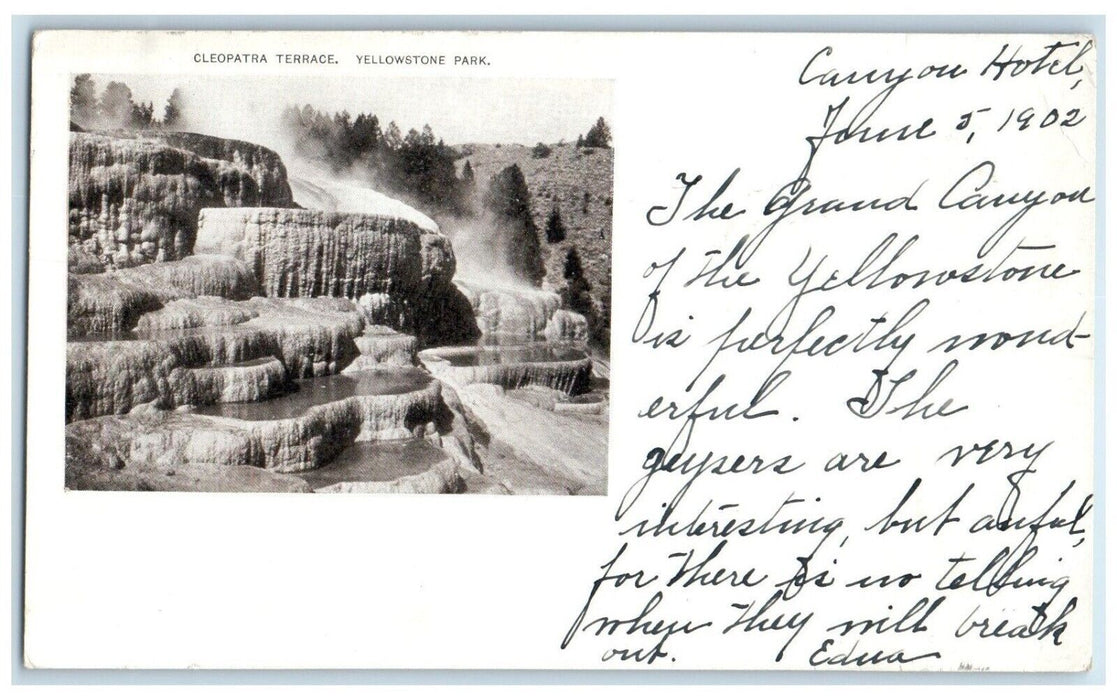 CLEOPATRA TERRACE. YELLOWSTONE PARK.
Canyon Hotel,
June 5, 1902
The Grand Canyon
of the Yellowstone
is perfectly wond-
erful. The
geysers are very
interesting, but awful,
for there is no telling
when they will break
out. Edna